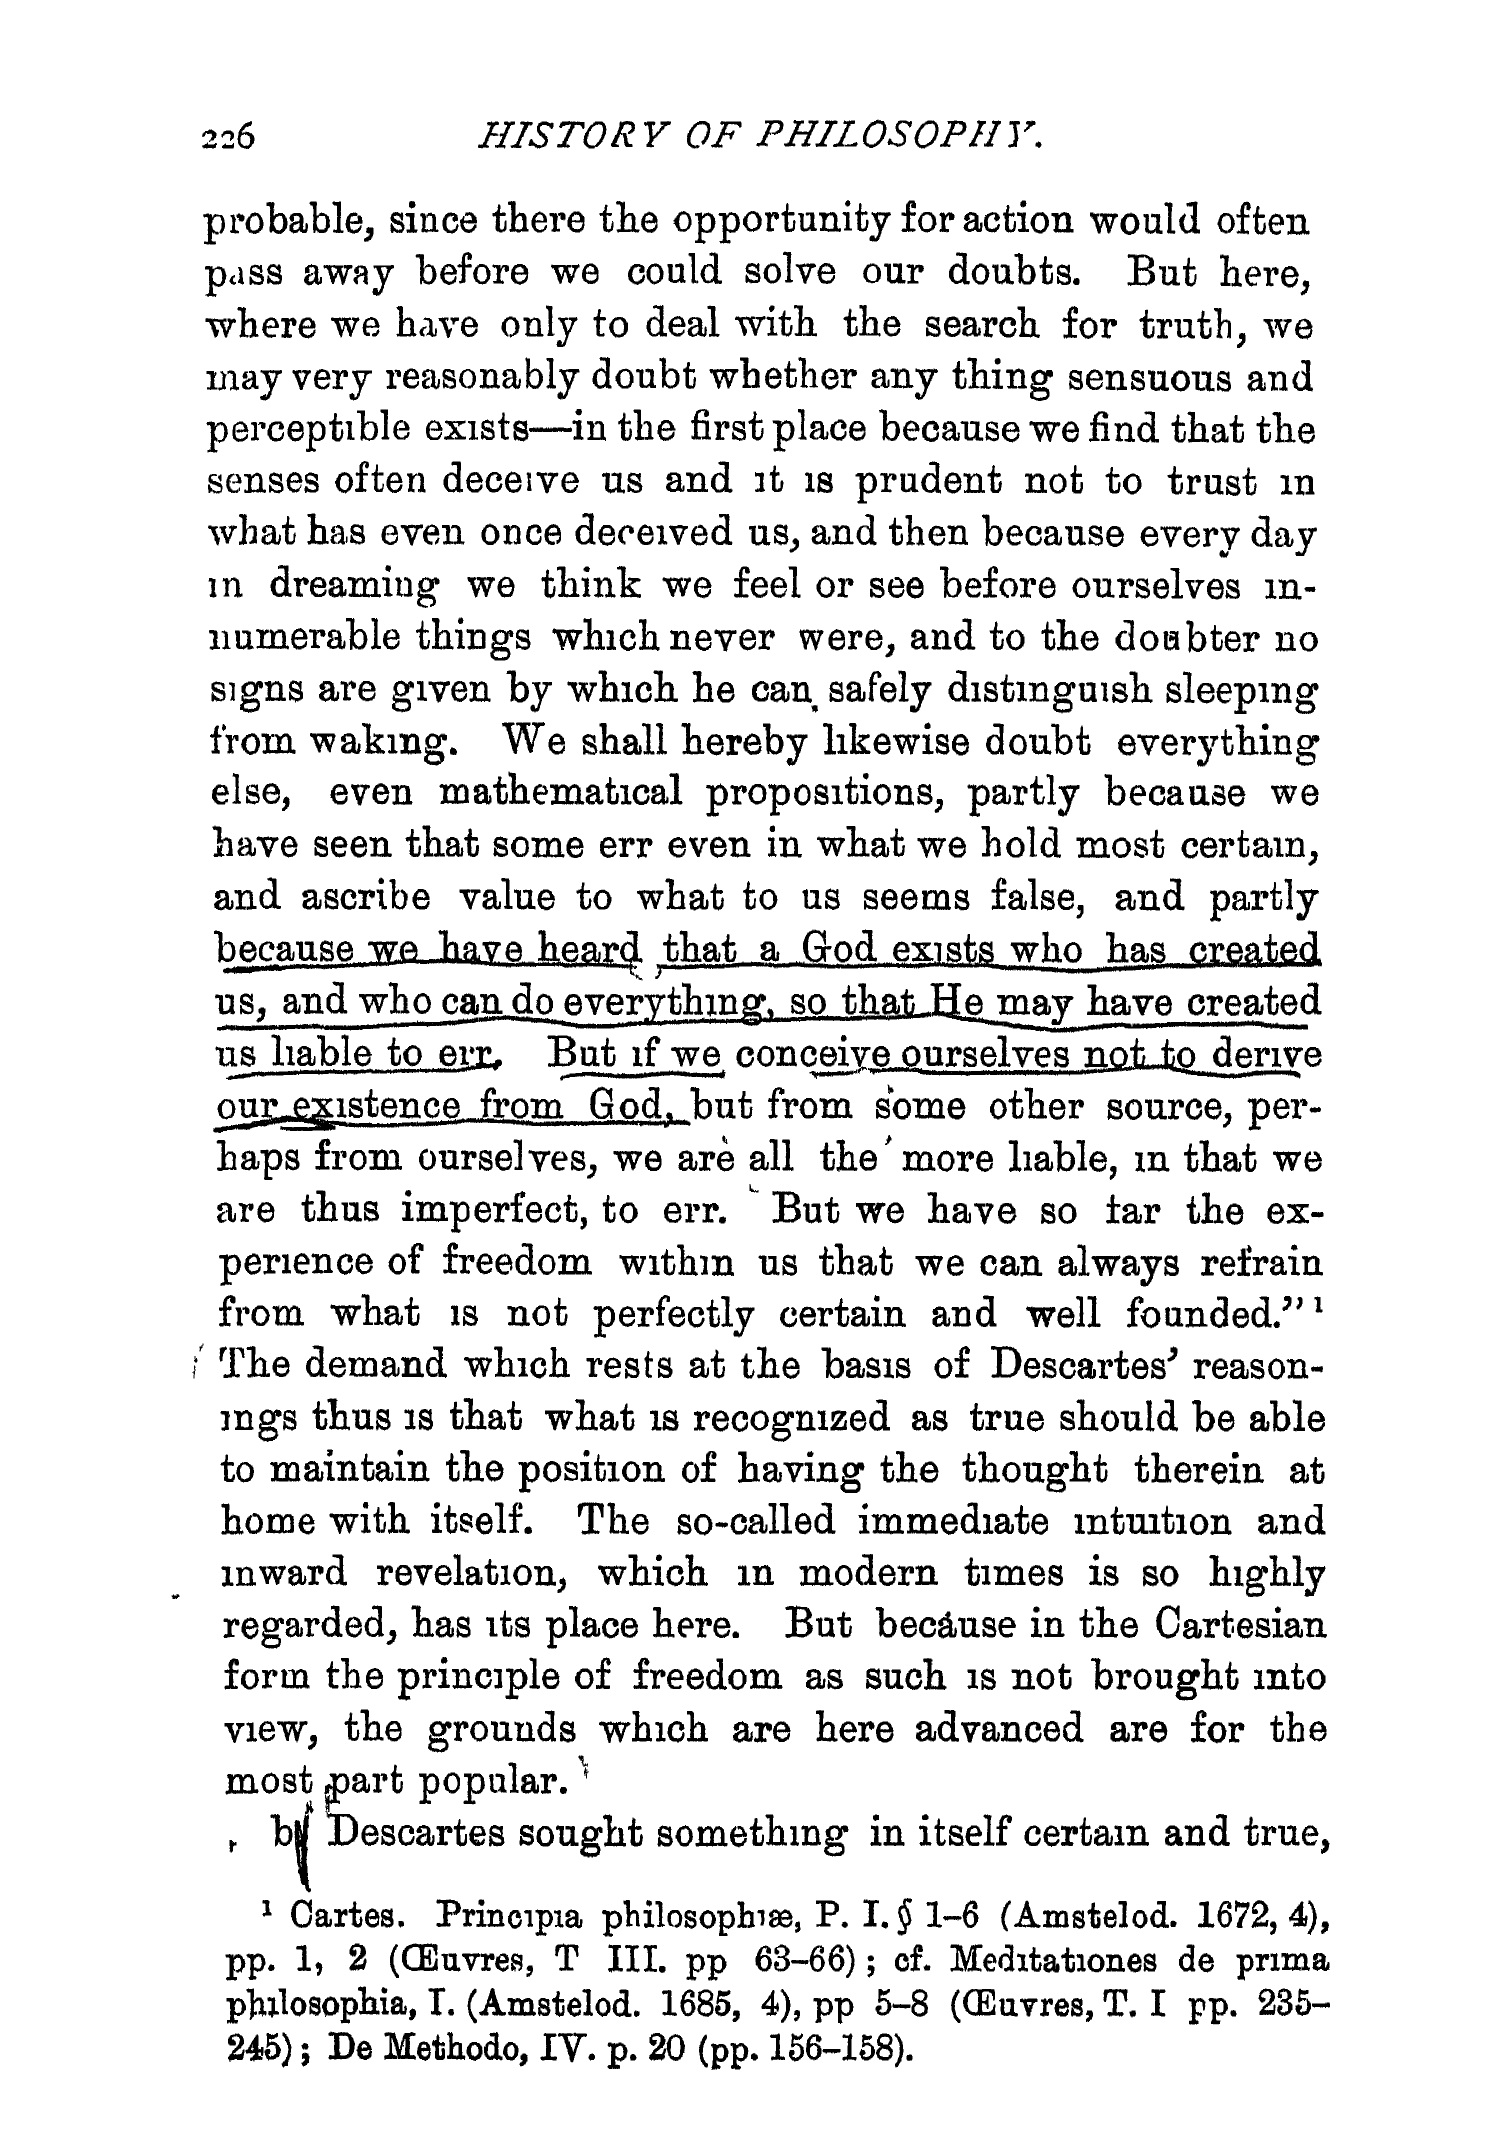 226 HISTORY OF PHILOSOPHY.
probable, since there the opportunity for action would often
pass away before we could solve our doubts. But here,
where we have only to deal with the search for truth, we
may very reasonably doubt whether any thing sensuous and
perceptible exists—in the first place because we find that the
senses often deceive us and it is prudent not to trust in
what has even once deceived us, and then because every day
in dreaming we think we feel or see before ourselves in-
numerable things which never were, and to the doubter no
signs are given by which he can safely distinguish sleeping
from waking. We shall hereby likewise doubt everything
else, even mathematical propositions, partly because we
have seen that some err even in what we hold most certain,
and ascribe value to what to us seems false, and partly
because we have heard that a God exists who has created
us, and who can do everything, so that He may have created
us liable to err. But if we conceive ourselves not to derive
our existence from God, but from some other source, per-
haps from ourselves, we are all the more liable, in that we
are thus imperfect, to err. But we have so far the ex-
perience of freedom within us that we can always refrain
from what is not perfectly certain and well founded.” ¹
The demand which rests at the basis of Descartes’ reason-
ings thus is that what is recognized as true should be able
to maintain the position of having the thought therein at
home with itself. The so-called immediate intuition and
inward revelation, which in modern times is so highly
regarded, has its place here. But because in the Cartesian
form the principle of freedom as such is not brought into
view, the grounds which are here advanced are for the
most part popular.
b Descartes sought something in itself certain and true,
¹ Cartes. Principia philosophiæ, P. I. § 1–6 (Amstelod. 1672, 4),
pp. 1, 2 (Œuvres, T III. pp 63–66) ; cf. Meditationes de prima
philosophia, I. (Amstelod. 1685, 4), pp 5–8 (Œuvres, T. I pp. 235–
245) ; De Methodo, IV. p. 20 (pp. 156–158).